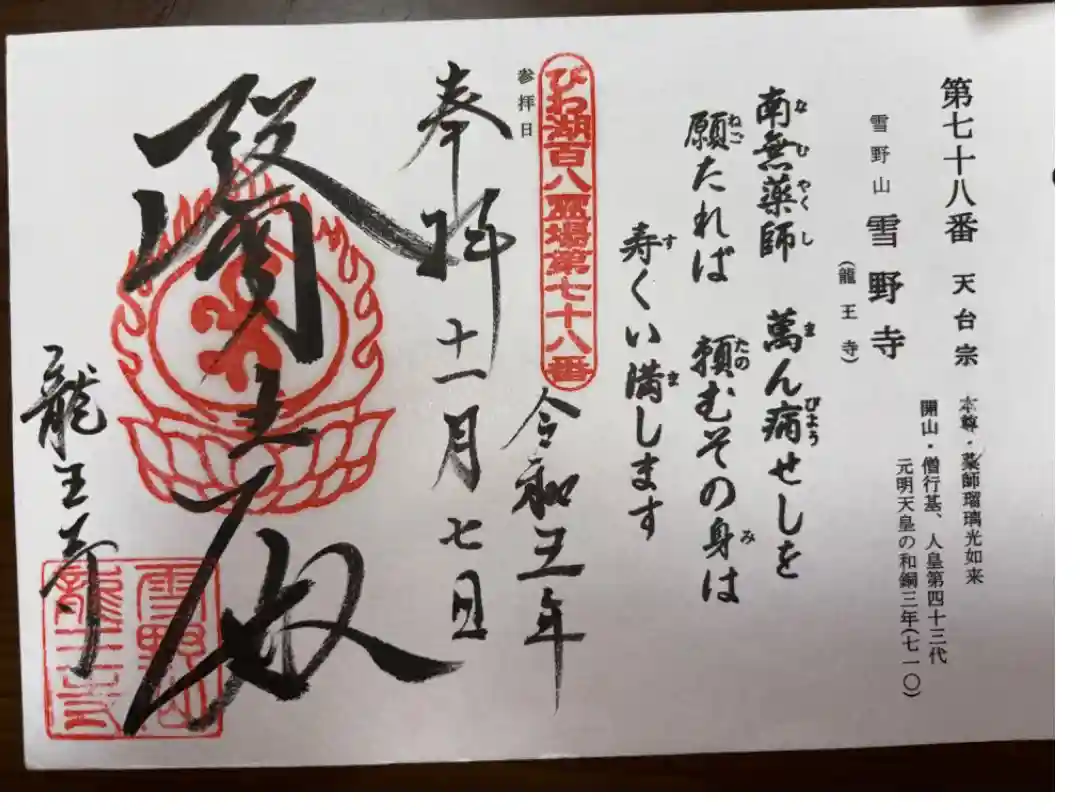 第七十八番 天台宗
本尊・薬師瑠璃光如来
開山・僧行基、人皇第四十三代
元明天皇の和銅三年(七一〇)
雪野山 雪野寺
(龍王寺)
なむやくし ま びょう
南無薬師 萬ん病せしを
ねご たの み
願たれば 頼むその身は
す ま
寿くい満します
びわ湖百八霊場第七十八番
参拝日
令和五年
奉拝 十一月七日
醫王殿
龍王寺
雪野山
龍王寺